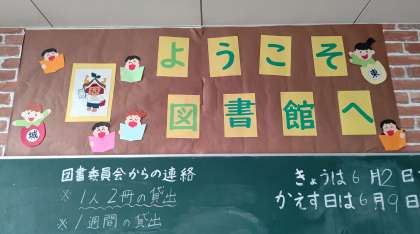 ようこそ
図書館へ
東
城
図書委員会からの連絡
※1人2冊の貸出
※1週間の貸出
きょうは6月2日
かえす日は6月9日